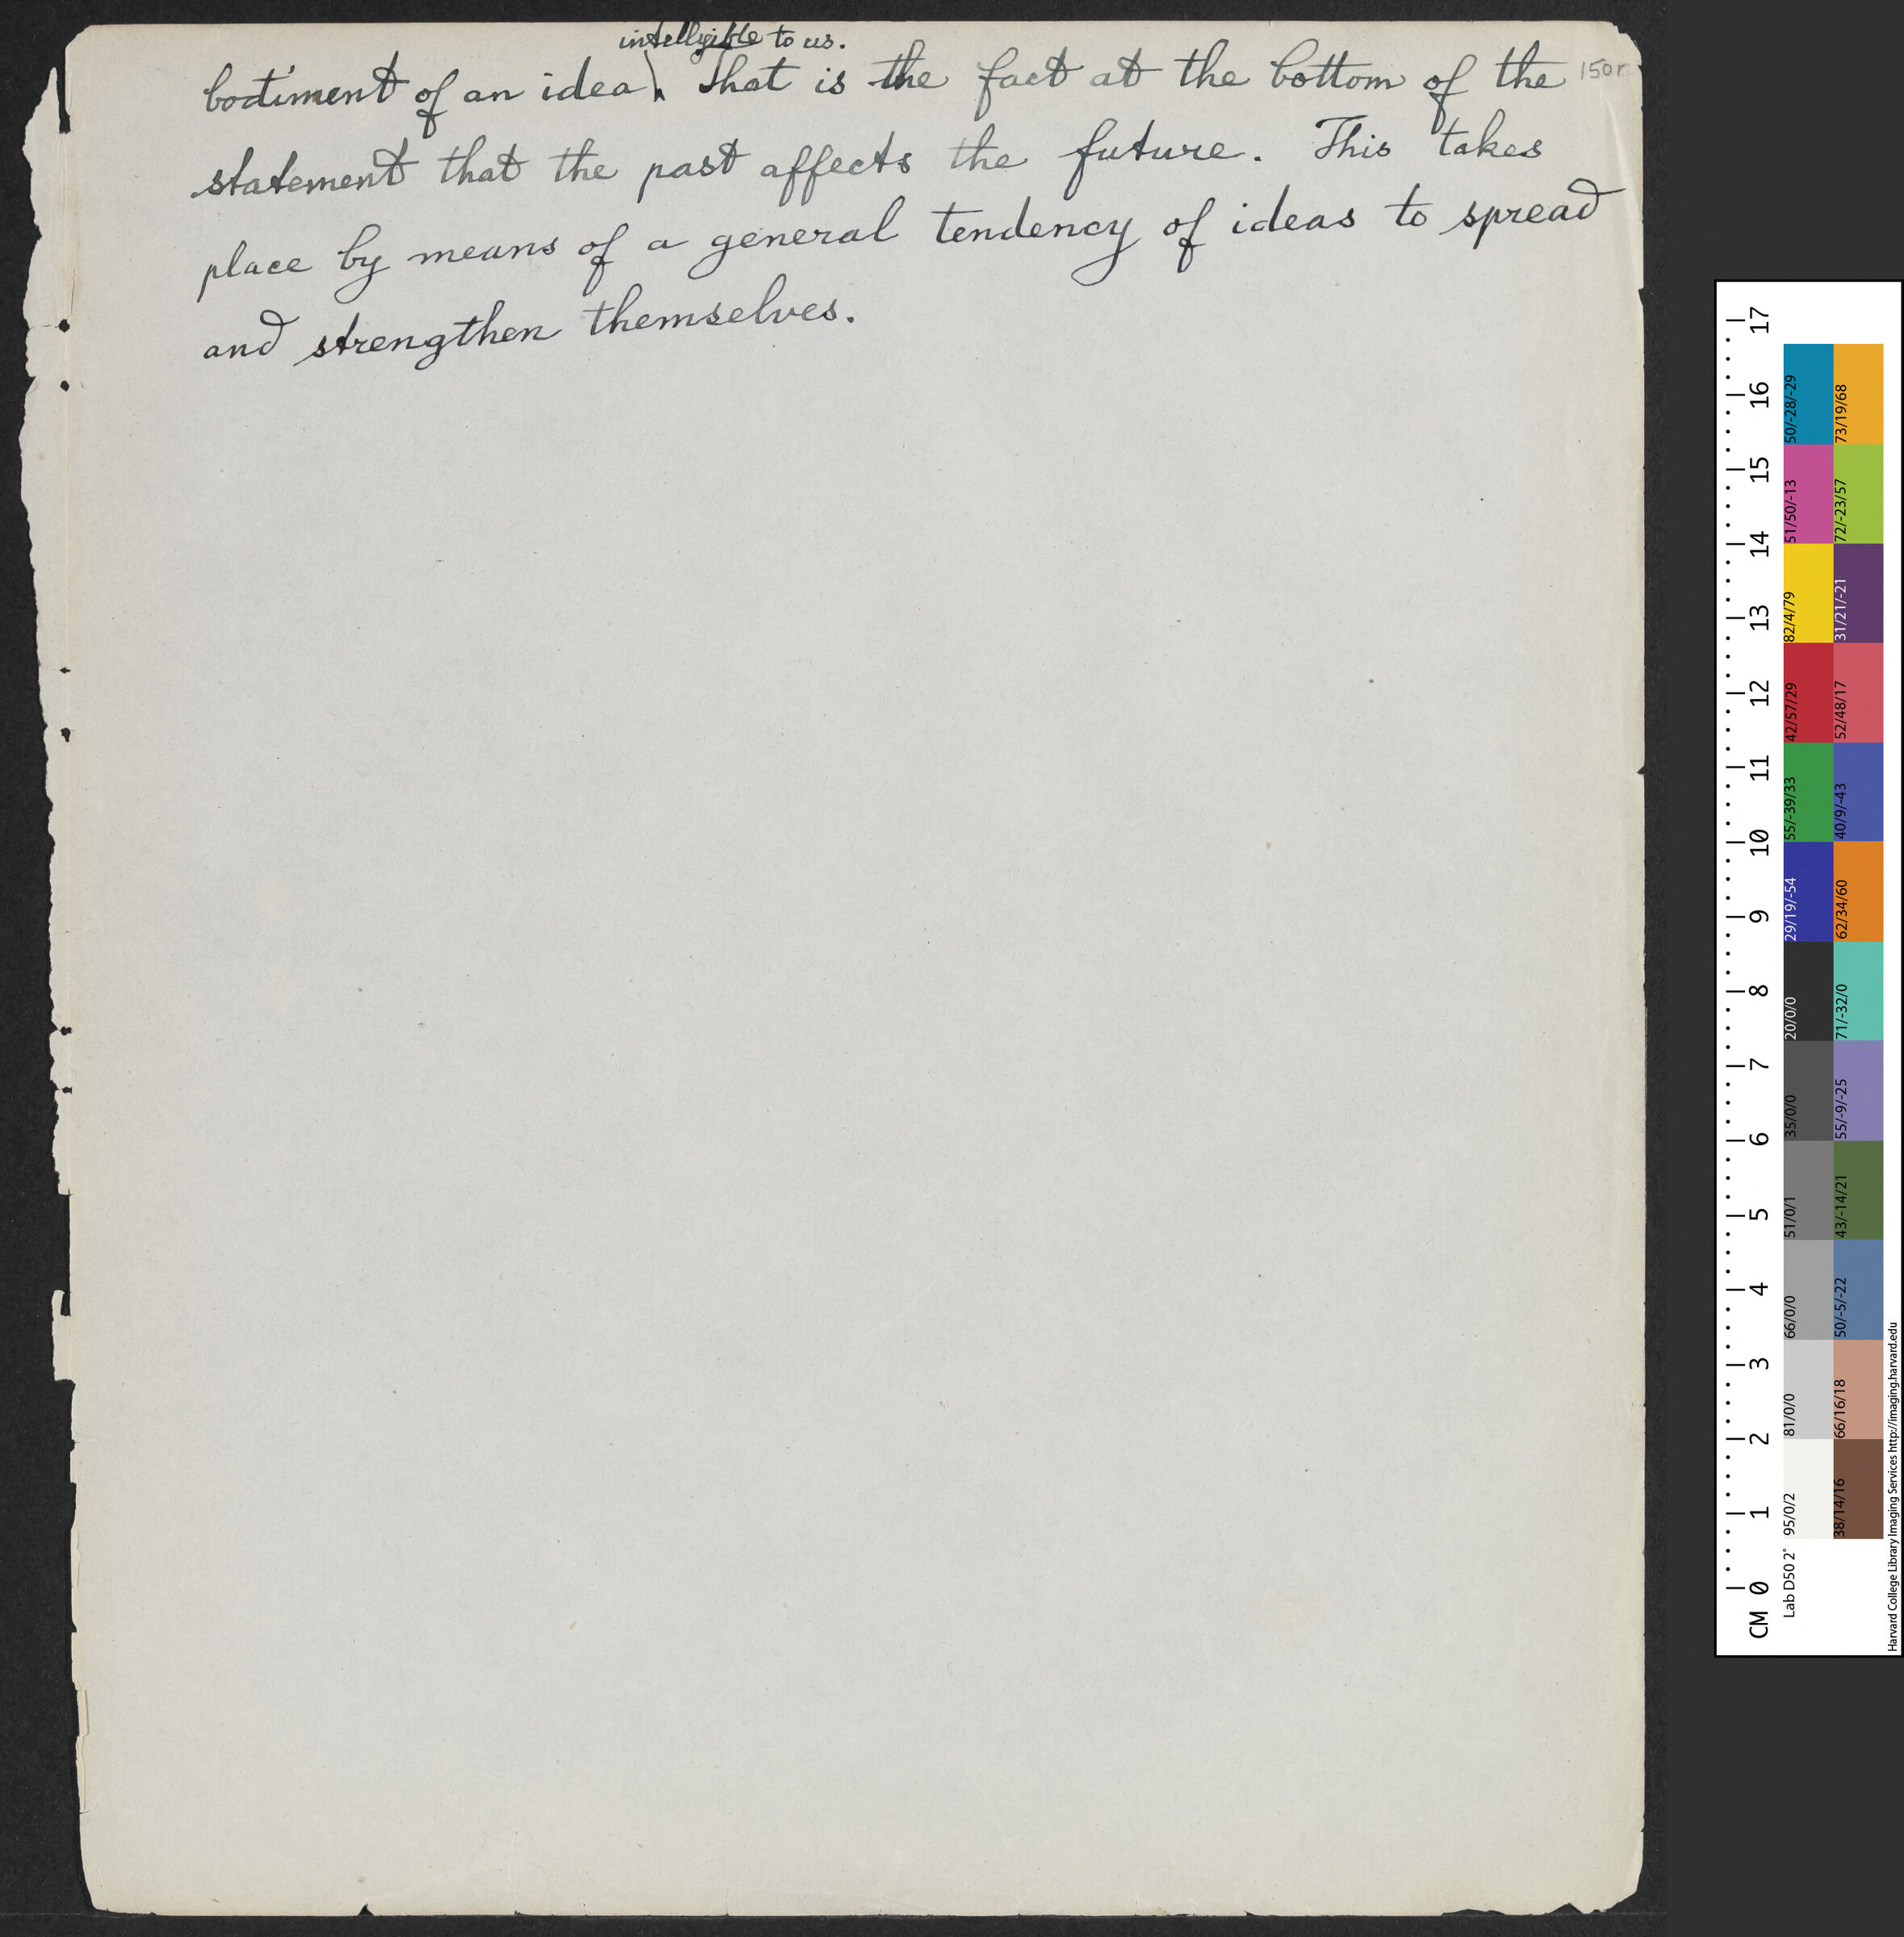 intelligible to us.
bodiment of an idea. That is the fact at the bottom of the
150r
statement that the past affects the future. This takes
place by means of a general tendency of ideas to spread
and strengthen themselves.
CM 0 1 2 3 4 5 6 7 8 9 10 11 12 13 14 15 16 17
Lab D50 2° 95/0/2 81/0/0 66/0/0 51/0/1 35/0/0 20/0/0 29/19/-54 55/-39/33 42/57/29 82/4/79 51/50/-13 50/-28/-29
38/14/16 66/16/18 50/-5/-22 43/-14/21 55/-9/-25 71/-32/0 62/34/60 40/9/-43 52/48/17 31/21/-21 72/-23/57 73/19/68
Harvard College Library Imaging Services http://imaging.harvard.edu